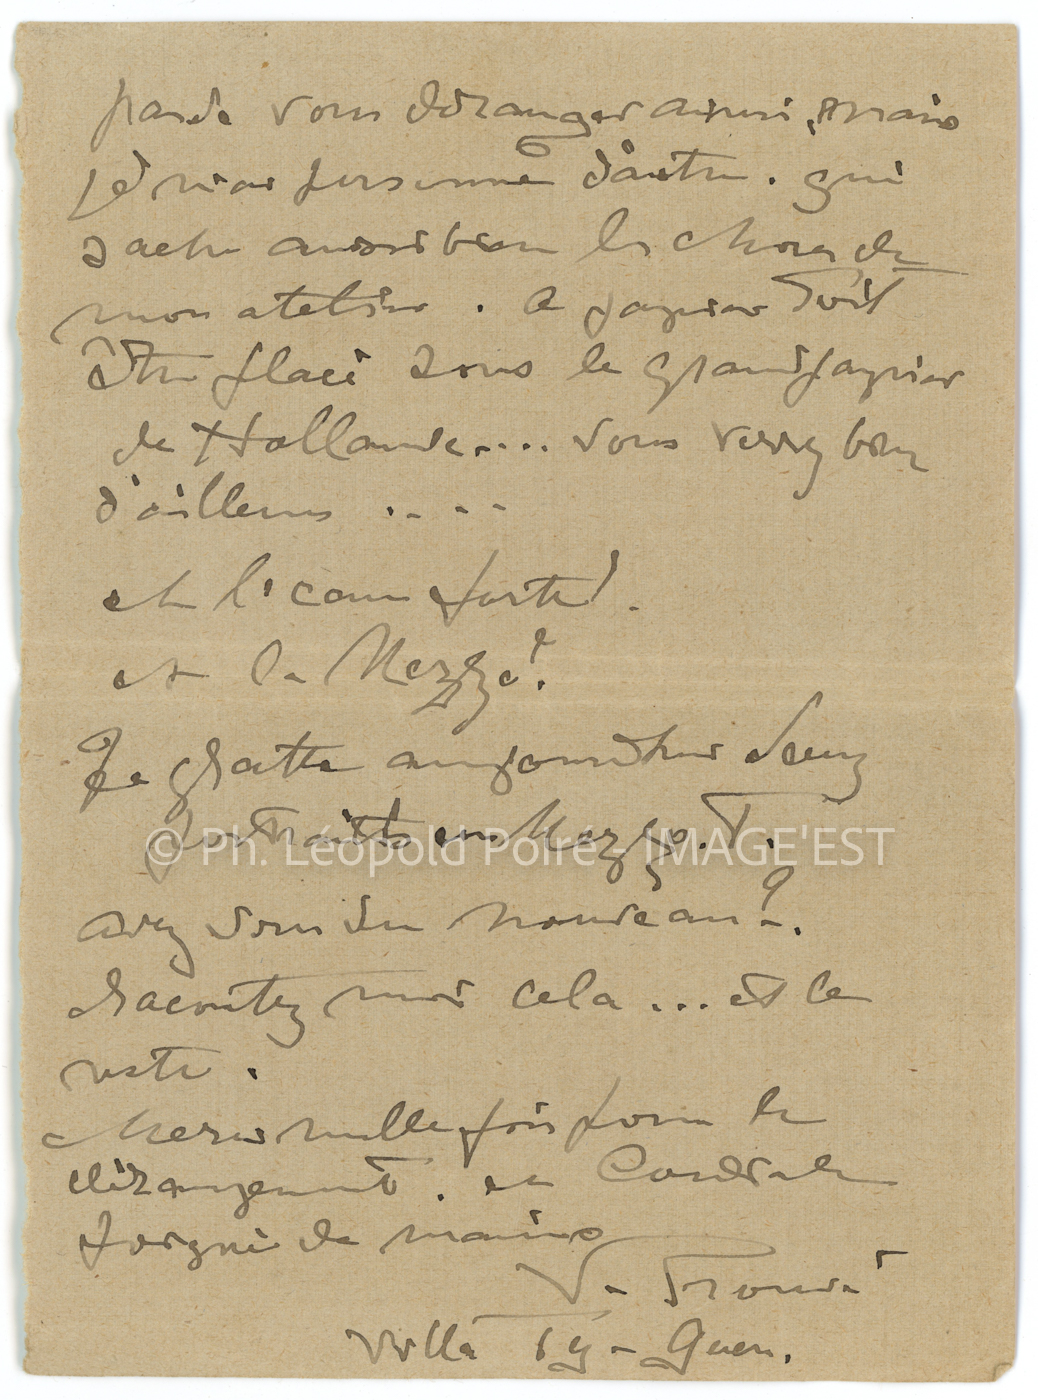 pas de vous déranger ainsi, mais
je n'ai personne d'autre. qui
sache aussi bien les choses de
mon atelier. le papier doit
être placé sous le grand papier
de Hollande.... vous verrez bien
d'ailleurs ....
et l'eau forte!.
et la Mezzo?
Je gratte aujourd'hui deux
portraits en Mezzo. T.
© Ph. Léopold Poiré - IMAGE'EST
avez vous du nouveau?.
racontez moi cela ... et le
reste.
Merci mille fois pour le
dérangement. et Cordiale
poignée de mains
V. Prouvé
Villa Ty-Guen.